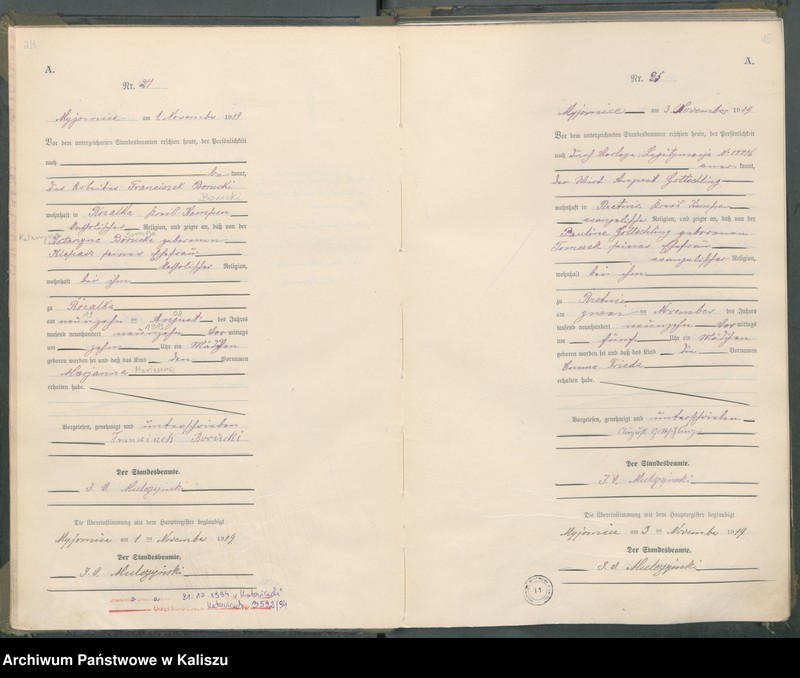 A.
Nr. 24
Myjomice am 1. November 1919
Vor dem unterzeichneten Standesbeamten erschien heute, der Persönlichkeit
nach
be kannt,
der Arbeiter Franciszek Borucki
Borucki
wohnhaft in Rózalka Kreis Kempen
katholischer Religion, und zeigte an, daß von der
geborenen
seiner Ehefrau
katholischer Religion,
wohnhaft bei ihm
zu Rózalka
am neunzehn ten August des Jahres
tausend neunhundert neunzehn Vor mittags
um zehn Uhr ein Mädchen
geboren worden sei und daß das Kind den Vornamen
Marjanna Marianna
erhalten habe.
Vorgelesen, genehmigt und unterschrieben
Franciszek Borucki
Der Standesbeamte.
J. V. Mulczyński
Die Übereinstimmung mit dem Hauptregister beglaubigt
Myjomice am 1 ten November 1919
Der Standesbeamte.
J. V. Mulczyński
A.
Nr. 25
Myjomice am 3. November 1919
Vor dem unterzeichneten Standesbeamten erschien heute, der Persönlichkeit
nach durch Vorlage
kannt,
der Wirt August Gottschling
wohnhaft in Kreis Kempen
evangelischer Religion, und zeigte an, daß von der
Pauline Gottschling geborenen
Tomczek seiner Ehefrau
evangelischer Religion,
wohnhaft bei ihm
zu
am zwei ten November des Jahres
tausend neunhundert neunzehn Vor mittags
um fünf Uhr ein Mädchen
geboren worden sei und daß das Kind die Vornamen
Emma Frieda
erhalten habe.
Vorgelesen, genehmigt und unterschrieben
August Gottschling
Der Standesbeamte.
J. V. Mulczyński
Die Übereinstimmung mit dem Hauptregister beglaubigt
Myjomice am 3 ten November 1919
Der Standesbeamte.
J. V. Mulczyński
Archiwum Państwowe w Kaliszu